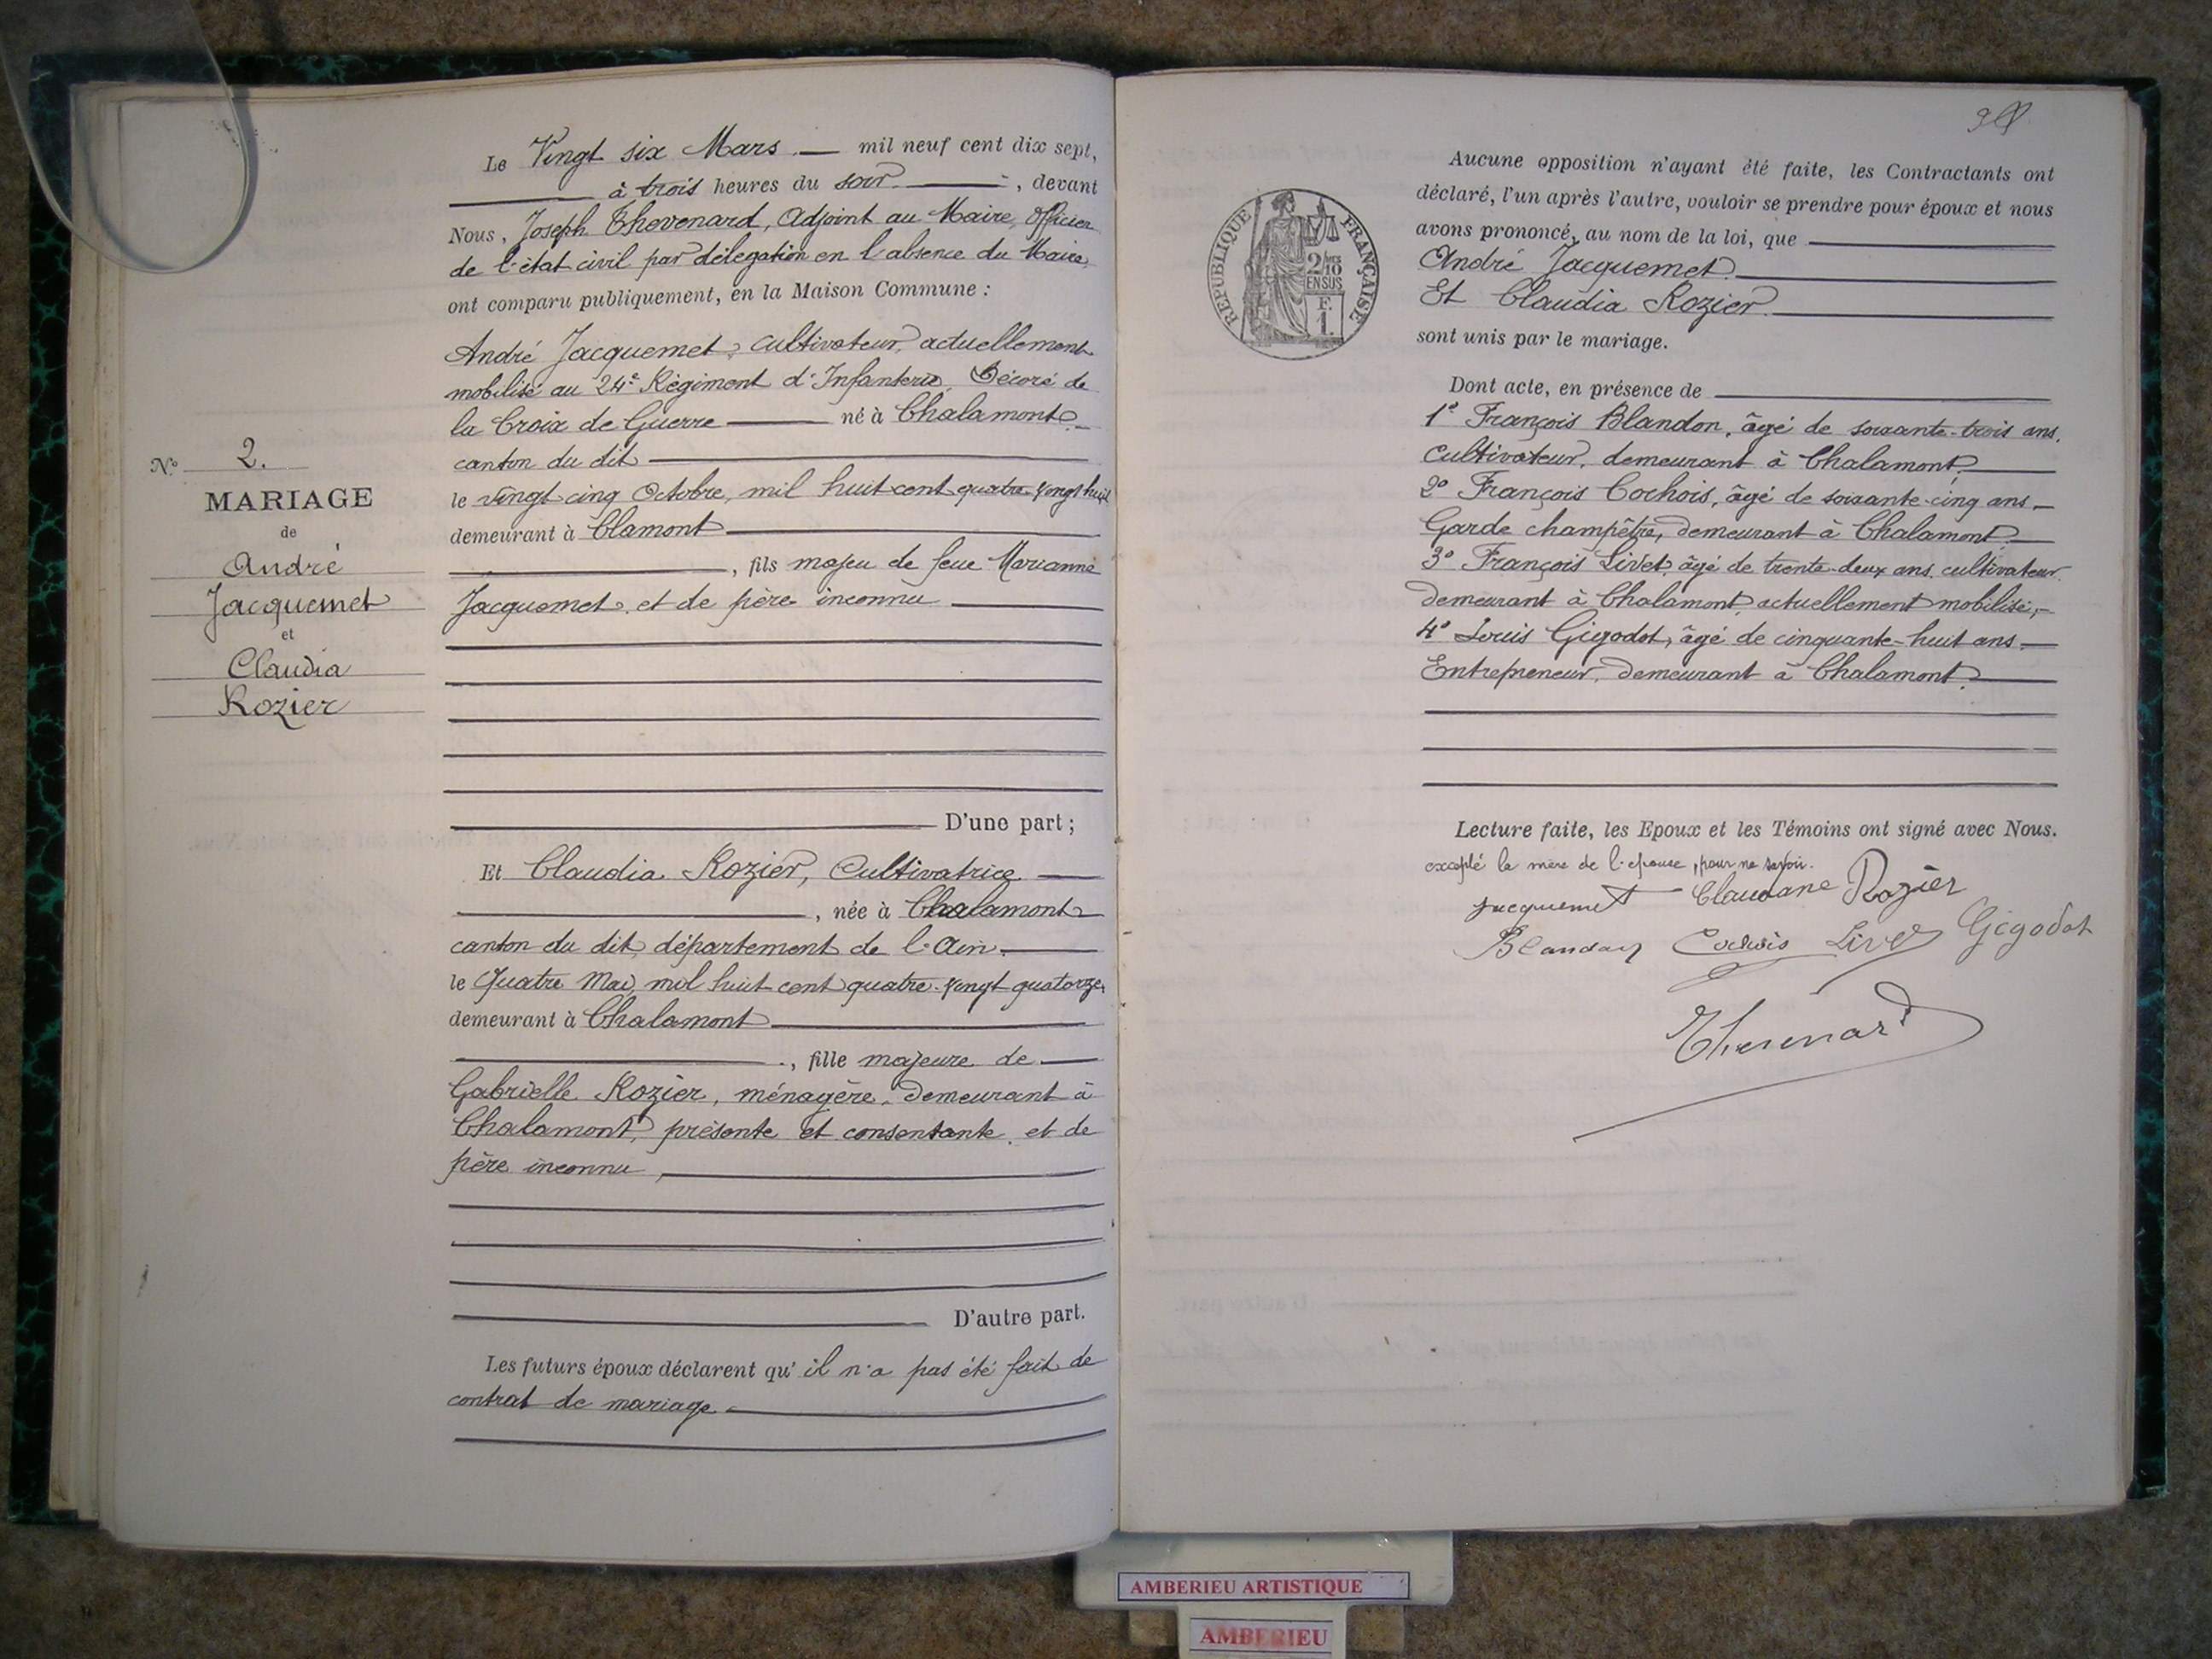 Le Vingt six Mars mil neuf cent dix sept,
à trois heures du soir, devant
Nous, Joseph Thevenard, Adjoint au Maire, Officier
de l'état civil par délégation en l'absence du Maire,
ont comparu publiquement, en la Maison Commune :
André Jacquemet, cultivateur, actuellement
mobilisé au 24e Régiment d'Infanterie, Décoré de
la Croix de Guerre né à Chalamont
canton du dit
le vingt cinq Octobre, mil huit cent quatre-vingt huit
demeurant à Clamont
, fils majeu de feue Marianne
Jacquemet, et de père inconnu
D'une part ;
N° 2.
MARIAGE
de
André
Jacquemet
et
Claudia
Rozier
Et Claudia Rozier, Cultivatrice
, née à Chalamont
canton du dit, département de l'Ain.
le Quatre Mai, mil huit cent quatre-vingt quatorze,
demeurant à Chalamont
, fille majeure de
Gabrielle Rozier, ménagère, demeurant à
Chalamont, présente et consentante, et de
père inconnu,
D'autre part.
Les futurs époux déclarent qu'il n'a pas été fait de
contrat de mariage.
Aucune opposition n'ayant été faite, les Contractants ont
déclaré, l'un après l'autre, vouloir se prendre pour époux et nous
avons prononcé, au nom de la loi, que
André Jacquemet
Et Claudia Rozier
sont unis par le mariage.
RÉPUBLIQUE FRANÇAISE
2/10
EN SUS
F.
1.
Dont acte, en présence de
1° François Blandon, âgé de soixante-trois ans,
cultivateur, demeurant à Chalamont,
2° François Cochois, âgé de soixante-cinq ans,
Garde champêtre, demeurant à Chalamont,
3° François Livet, âgé de trente-deux ans, cultivateur,
demeurant à Chalamont, actuellement mobilisé,
4° Louis Gigodot, âgé de cinquante-huit ans,
Entrepreneur, demeurant à Chalamont.
Lecture faite, les Epoux et les Témoins ont signé avec Nous.
excepté la mère de l'épouse, pour ne savoir.
Jacquemet Rozier
Blandon Cochois Livet Gigodot
Thevenard
AMBERIEU ARTISTIQUE
AMBERIEU